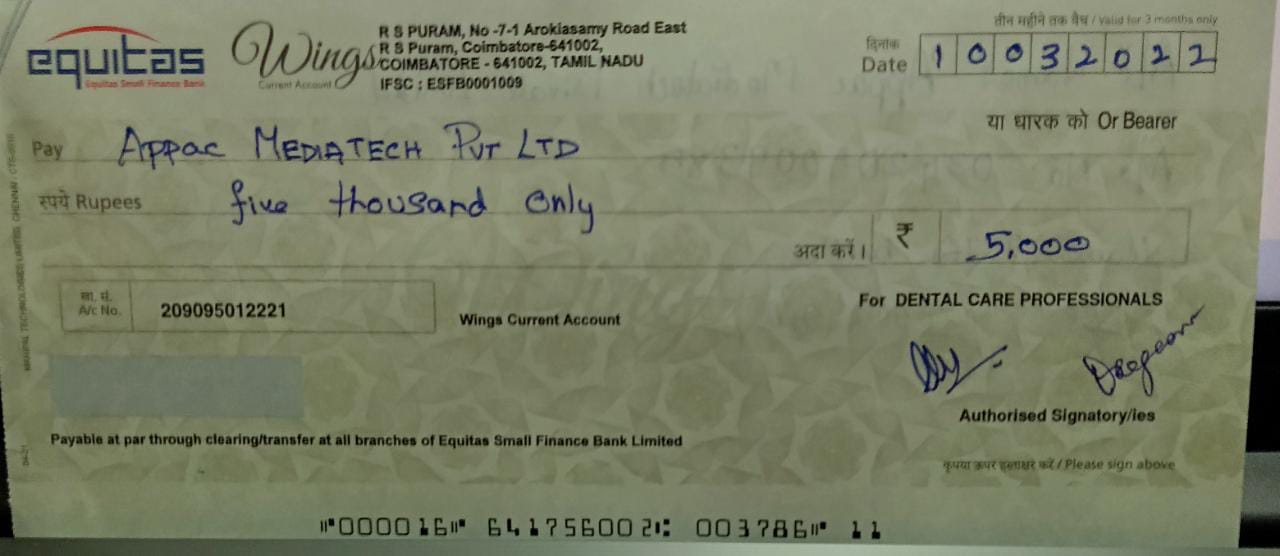 तीन महीने तक वैध / Valid for 3 months only
equitas
Equitas Small Finance Bank
Wings
Current Account
R S PURAM, No -7-1 Arokiasamy Road East
R S Puram, Coimbatore-641002,
COIMBATORE - 641002, TAMIL NADU
IFSC : ESFB0001009
दिनांक
Date 1 0 0 3 2 0 2 2
या धारक को Or Bearer
Pay Appac MEDIATECH PVT LTD
रुपये Rupees five thousand only
अदा करें। ₹ 5,000
खा. सं.
A/c No. 209095012221
Wings Current Account
For DENTAL CARE PROFESSIONALS
Authorised Signatory/ies
Payable at par through clearing/transfer at all branches of Equitas Small Finance Bank Limited
कृपया ऊपर हस्ताक्षर करें / Please sign above
⑈000016⑈ 641756002⑆ 003786⑈ 11